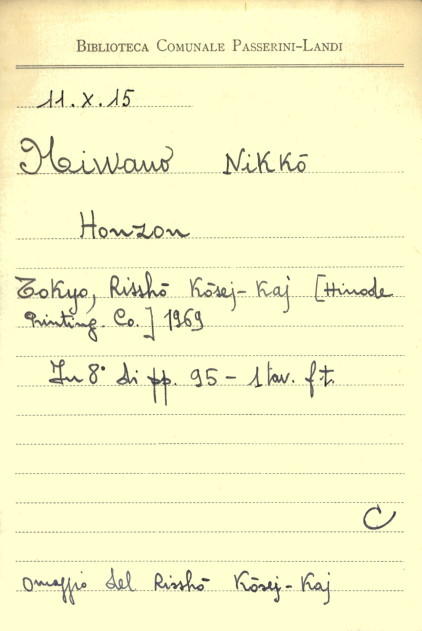 BIBLIOTECA COMUNALE PASSERINI-LANDI
11.X.15
Niwano Nikkō
Honzon
Tokyo, Risshō Kōsej-Kaj [Hinode
Printing. Co.] 1969
In 8° di pp. 95 - 1 tav. f.t.
C
Omaggio del Risshō Kōsej-Kaj